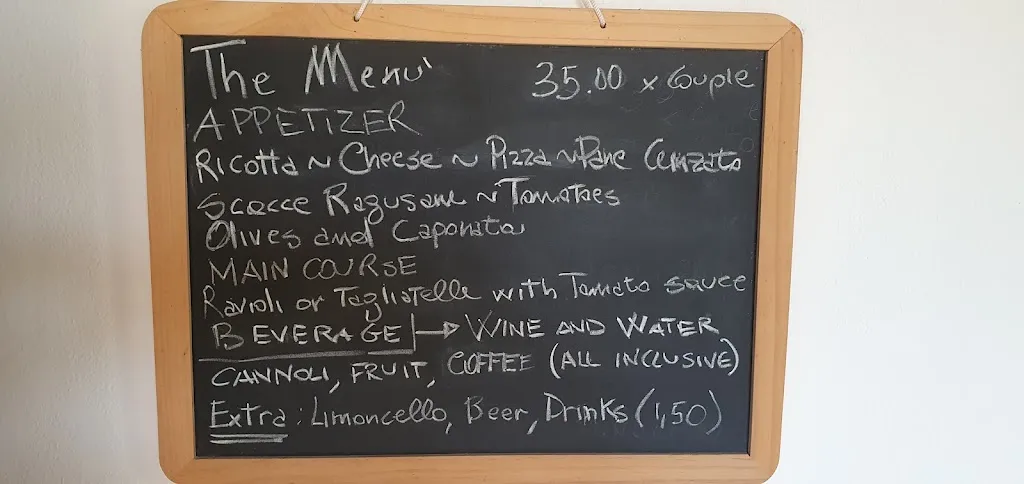 The Menu' 35.00 x Couple
APPETIZER
Ricotta ~ Cheese ~ Pizza ~ Pane Cunzato
Scacce Ragusane ~ Tomatoes
Olives and Caponata
MAIN COURSE
Ravioli or Tagliatelle with Tomato sauce
BEVERAGE → WINE AND WATER
CANNOLI, FRUIT, COFFEE (ALL INCLUSIVE)
Extra: Limoncello, Beer, Drinks (1,50)